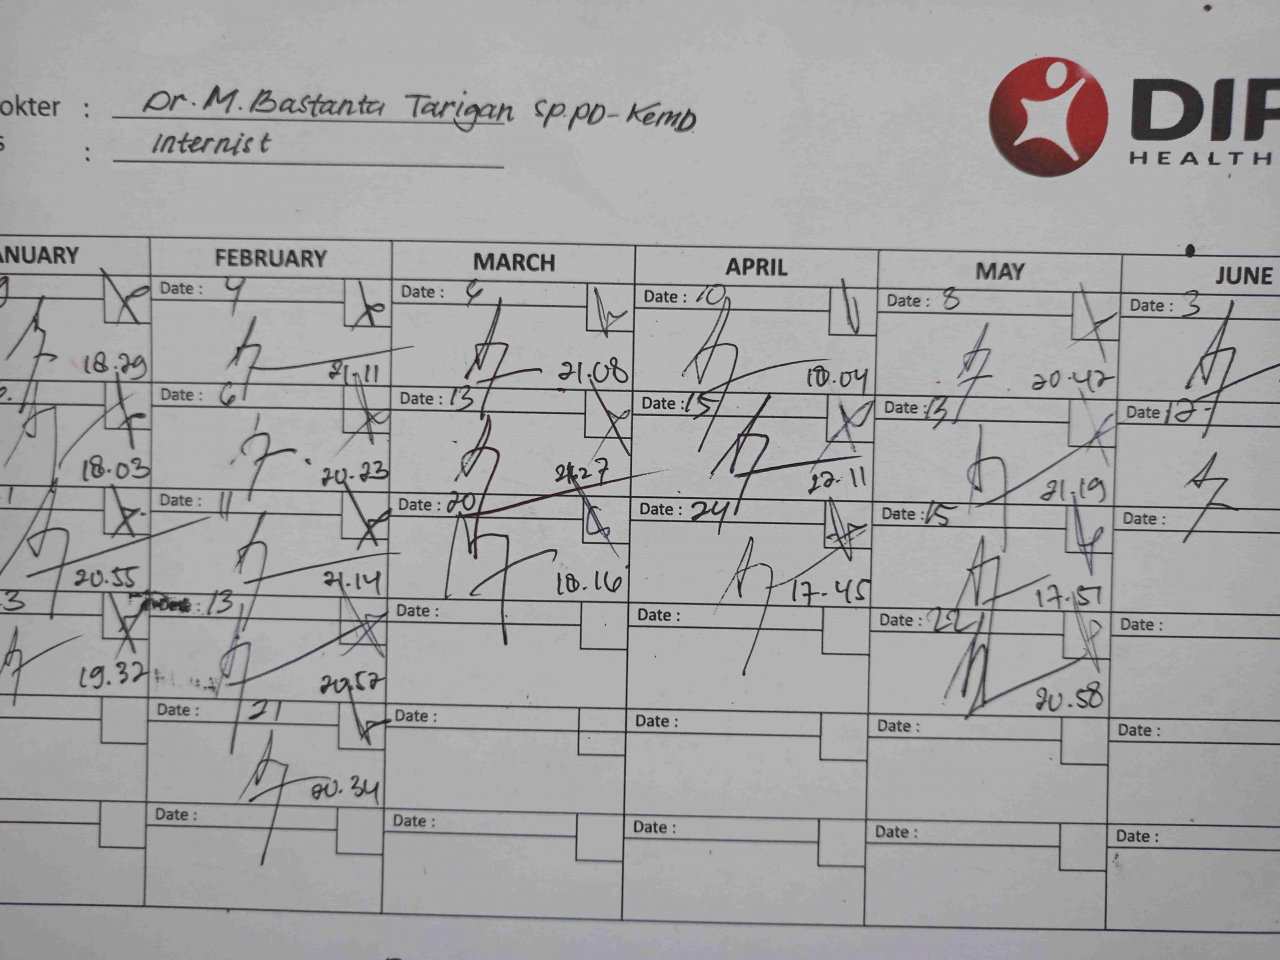 okter : Dr. M. Bastanta Tarigan Sp.PD-KEMD
s : Internist
DIP
HEALTH
ANUARY FEBRUARY MARCH APRIL MAY JUNE
9 Date : 4 Date : 6 Date : 10 Date : 8 Date : 3
18.29 21.11 21.08 18.04 20.42
Date : 6 Date : 13 Date : 15 Date : 13 Date 12
18.03 20.23 21.27 22.11 21.19
1 Date : 11 Date : 20 Date : 24 Date : 15 Date :
20.55 21.14 18.16 17.45 17.51
3 : 13 Date : Date : Date : 22 Date :
19.32 20.52 20.58
Date : 21 Date : Date : Date : Date :
20.34
Date : Date : Date : Date : Date :